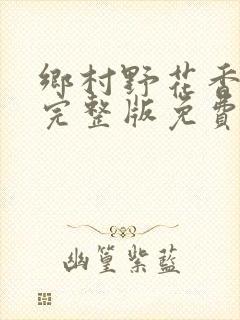 鄉村野花香
完整版免費
幽篁紫藍